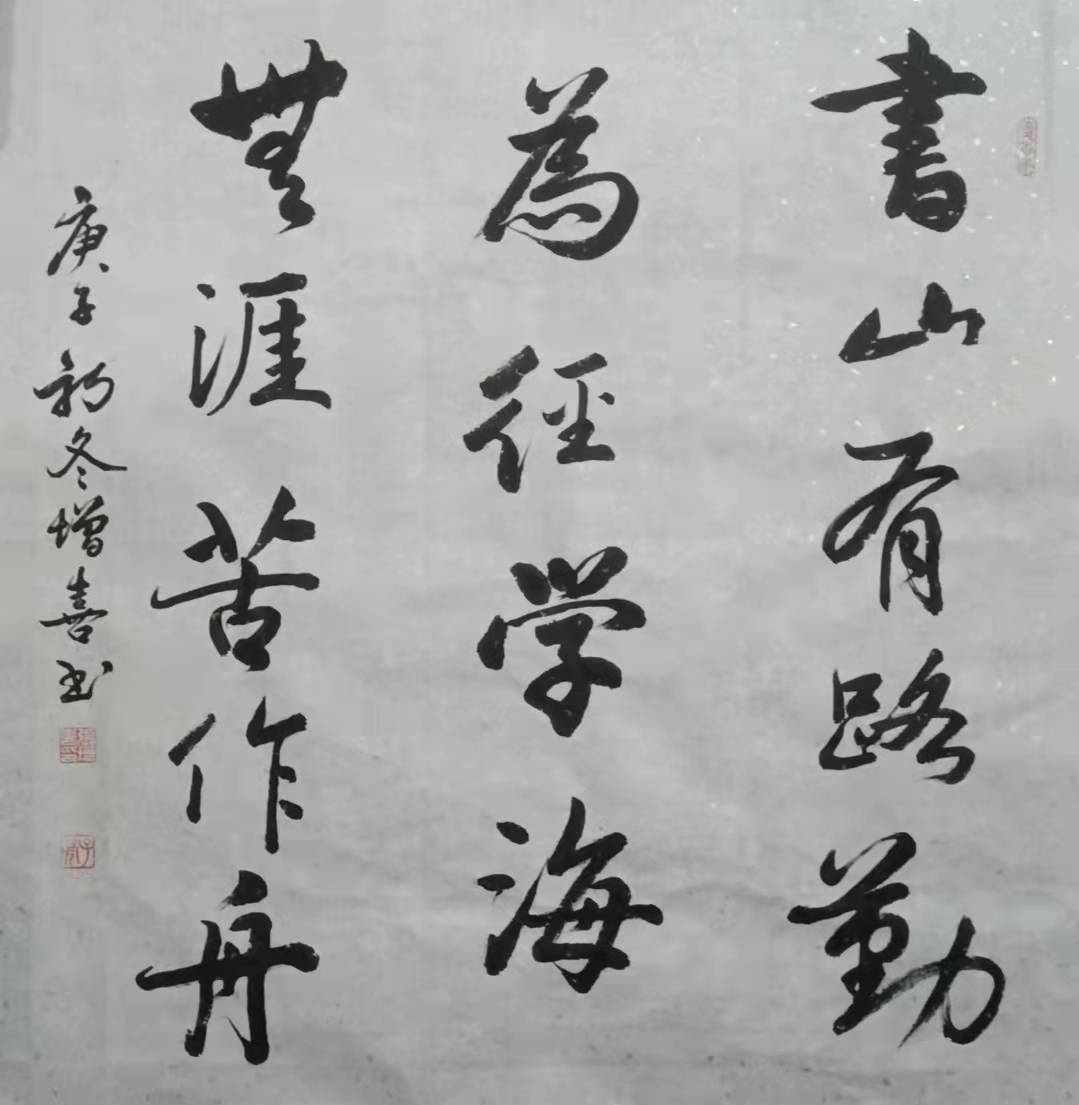 書山有路勤
為徑学海
無涯苦作舟
庚子初冬增喜书